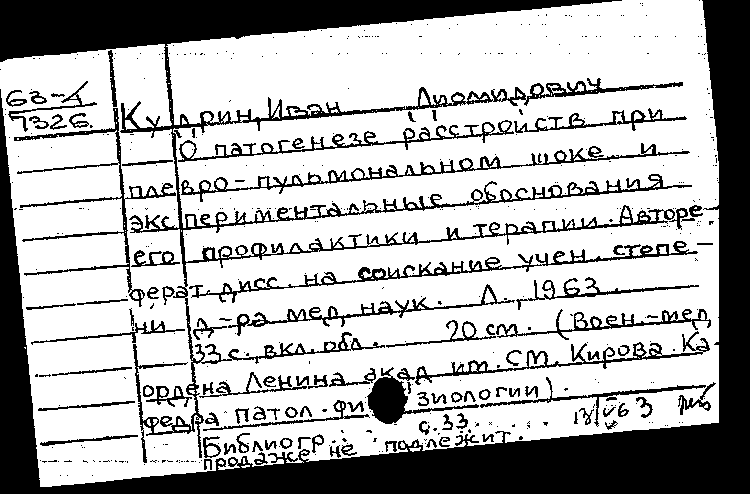 63-4
7326
Кудрин, Иван Диомидович
О патогенезе расстройств при
плевро-пульмональном шоке и
экспериментальные обоснования
его профилактики и терапии. Авторе-
ферат дисс. на соискание учен. степе-
ни д-ра мед. наук. Л., 1963.
33 с., вкл. обл. 20 см. (Воен.-мед.
ордена Ленина акад им. С.М. Кирова. Ка-
федра патол. физиологии).
Библиогр.: с. 33.
продаже не подлежит.